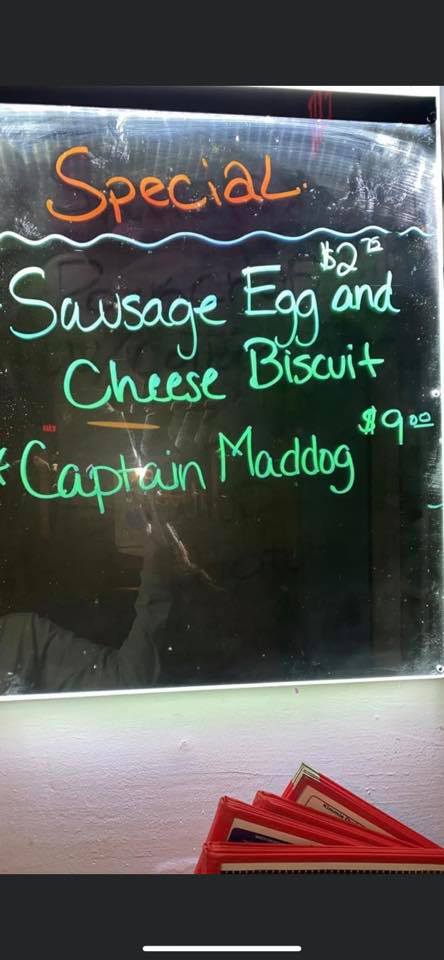 Special.
$2.75
Sausage Egg and
Cheese Biscuit
$9.00
Captain Maddog